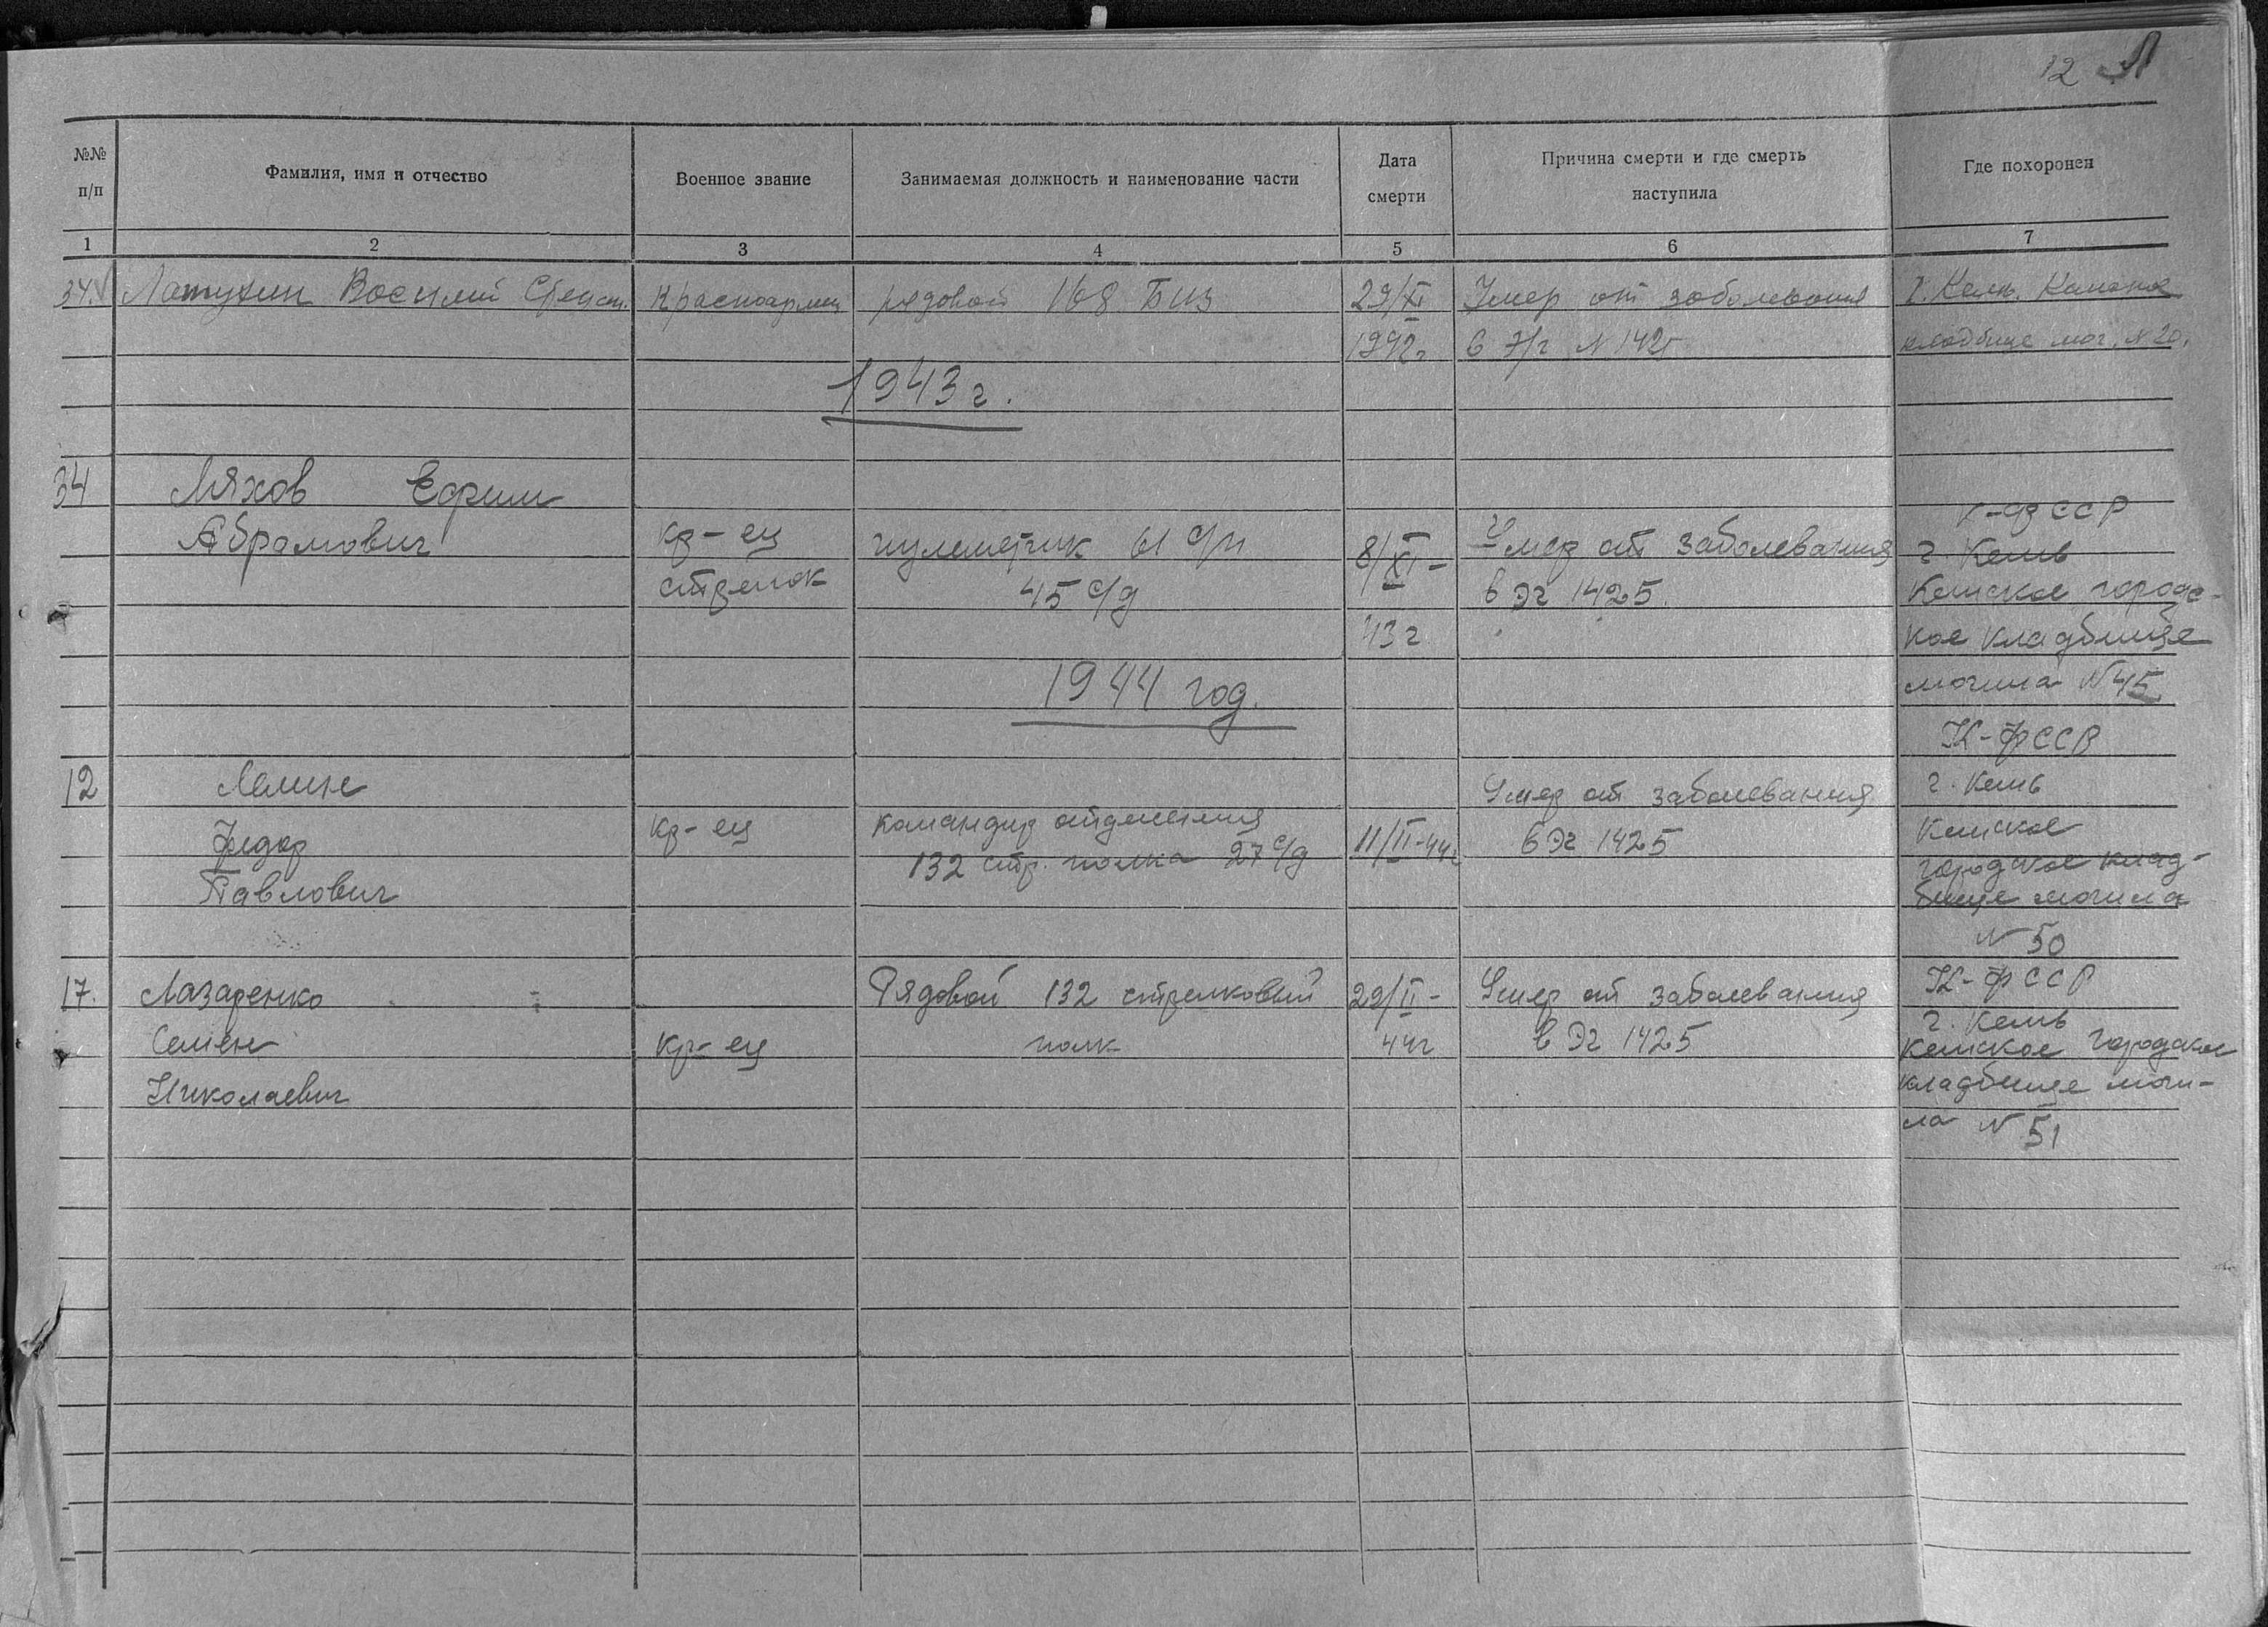 12 Л
№№ п/п
Фамилия, имя и отчество
Военное звание
Занимаемая должность и наименование части
Дата смерти
Причина смерти и где смерть наступила
Где похоронен
1 2 3 4 5 6 7
34. Латухин Василий красноармеец рядовой 168 29/XI Умер от заболевания г. Кемь.
1942г в Э/г N 1425 кладбище мог. N 20.
1943 г.
34 Ляхов Ефим
К-ФССР
Абрамович кр-ец пулеметчик 61 с/п 8/XI- Умер от заболевания г. Кемь
стрелок 45 с/д в Эг 1425. Кемское городс-
43 г кое кладбище
1944 год. могила N 45
К-ФССР
12 Лелин Умер от заболевания г. Кемь
Федор кр-ец командир отделения 11/II-44г в Эг 1425 Кемское
132 стр. полка 27 с/д городское клад-
Павлович бище могила
N 50
17. Лазаренко Рядовой 132 стрелковый 29/II- Умер от заболевания К-ФССР
г. Кемь
Семен кр-ец полк 44г в Эг 1425 Кемское городское
Николаевич кладбище моги-
ла N 51